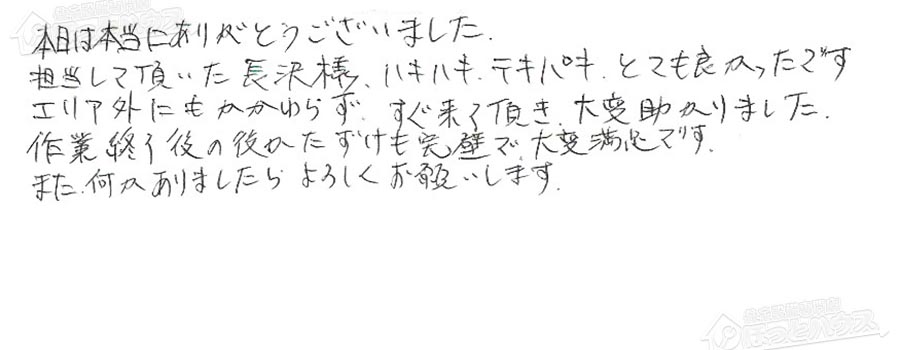 本日は本当にありがとうございました.
担当して頂いた長沢様、ハキハキ.テキパキ.とても良かったです
エリア外にもかかわらず.すぐ来て頂き.大変助かりました.
作業終了後の後かたずけも完璧で、大変満足です.
また.何かありましたらよろしくお願いします.
ほっとハウス